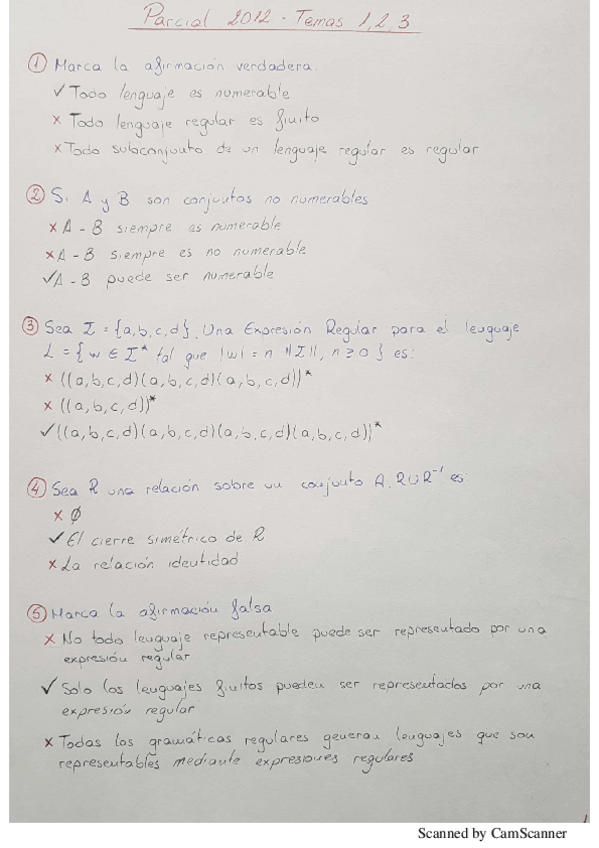 Parcial 2012 - Temas 1, 2, 3
① Marca la afirmación verdadera.
✓ Todo lenguaje es numerable
× Todo lenguaje regular es finito
× Todo subconjunto de un lenguaje regular es regular
② Si A y B son conjuntos no numerables
× A - B siempre es numerable
× A - B siempre es no numerable
✓ A - B puede ser numerable
③ Sea Σ = {a,b,c,d}. Una Expresión Regular para el lenguaje
L = { w ∈ Σ* tal que |w| = n ||Σ||, n ≥ 0 } es:
× ((a,b,c,d)(a,b,c,d)(a,b,c,d))*
× ((a,b,c,d))*
✓ ((a,b,c,d)(a,b,c,d)(a,b,c,d)(a,b,c,d))*
④ Sea R una relación sobre un conjunto A. R∪R⁻¹ es:
× Ø
✓ El cierre simétrico de R
× La relación identidad
⑤ Marca la afirmación falsa
× No todo lenguaje representable puede ser representado por una
expresión regular
✓ Solo los lenguajes finitos pueden ser representados por una
expresión regular
× Todas las gramáticas regulares generan lenguajes que son
representables mediante expresiones regulares
1
Scanned by CamScanner